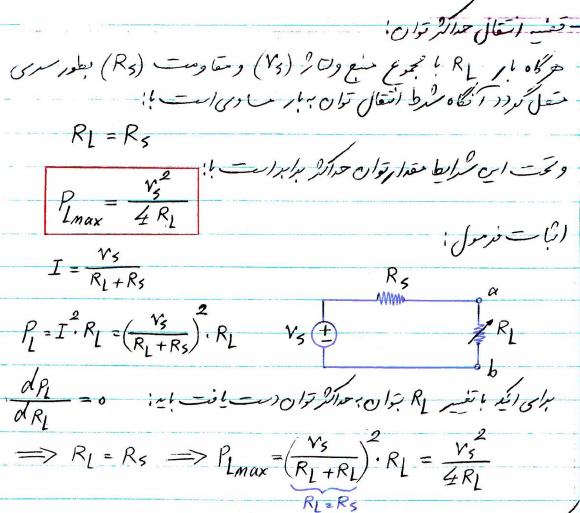 - قضیه انتقال حداکثر توان:
هرگاه بار R_L با مجموع منبع ولتاژ (v_s) و مقاومت (R_s) بطور سری
متصل گردد آنگاه شرط انتقال توان به بار مساوی است با:
R_L = R_s
و تحت این شرایط مقدار توان حداکثر برابر است با:
P_Lmax = v_s² / 4 R_L
اثبات فرمول:
I = v_s / (R_L + R_s)
R_s a
P_L = I² · R_L = (v_s / (R_L + R_s))² · R_L
v_s ± R_L
b
برای اینکه با تغییر R_L بتوان به حداکثر توان دست یافت باید:
dP_L / dR_L = 0
⟹ R_L = R_s ⟹ P_Lmax = (v_s / (R_L + R_L))² · R_L = v_s² / 4R_L
R_L = R_s